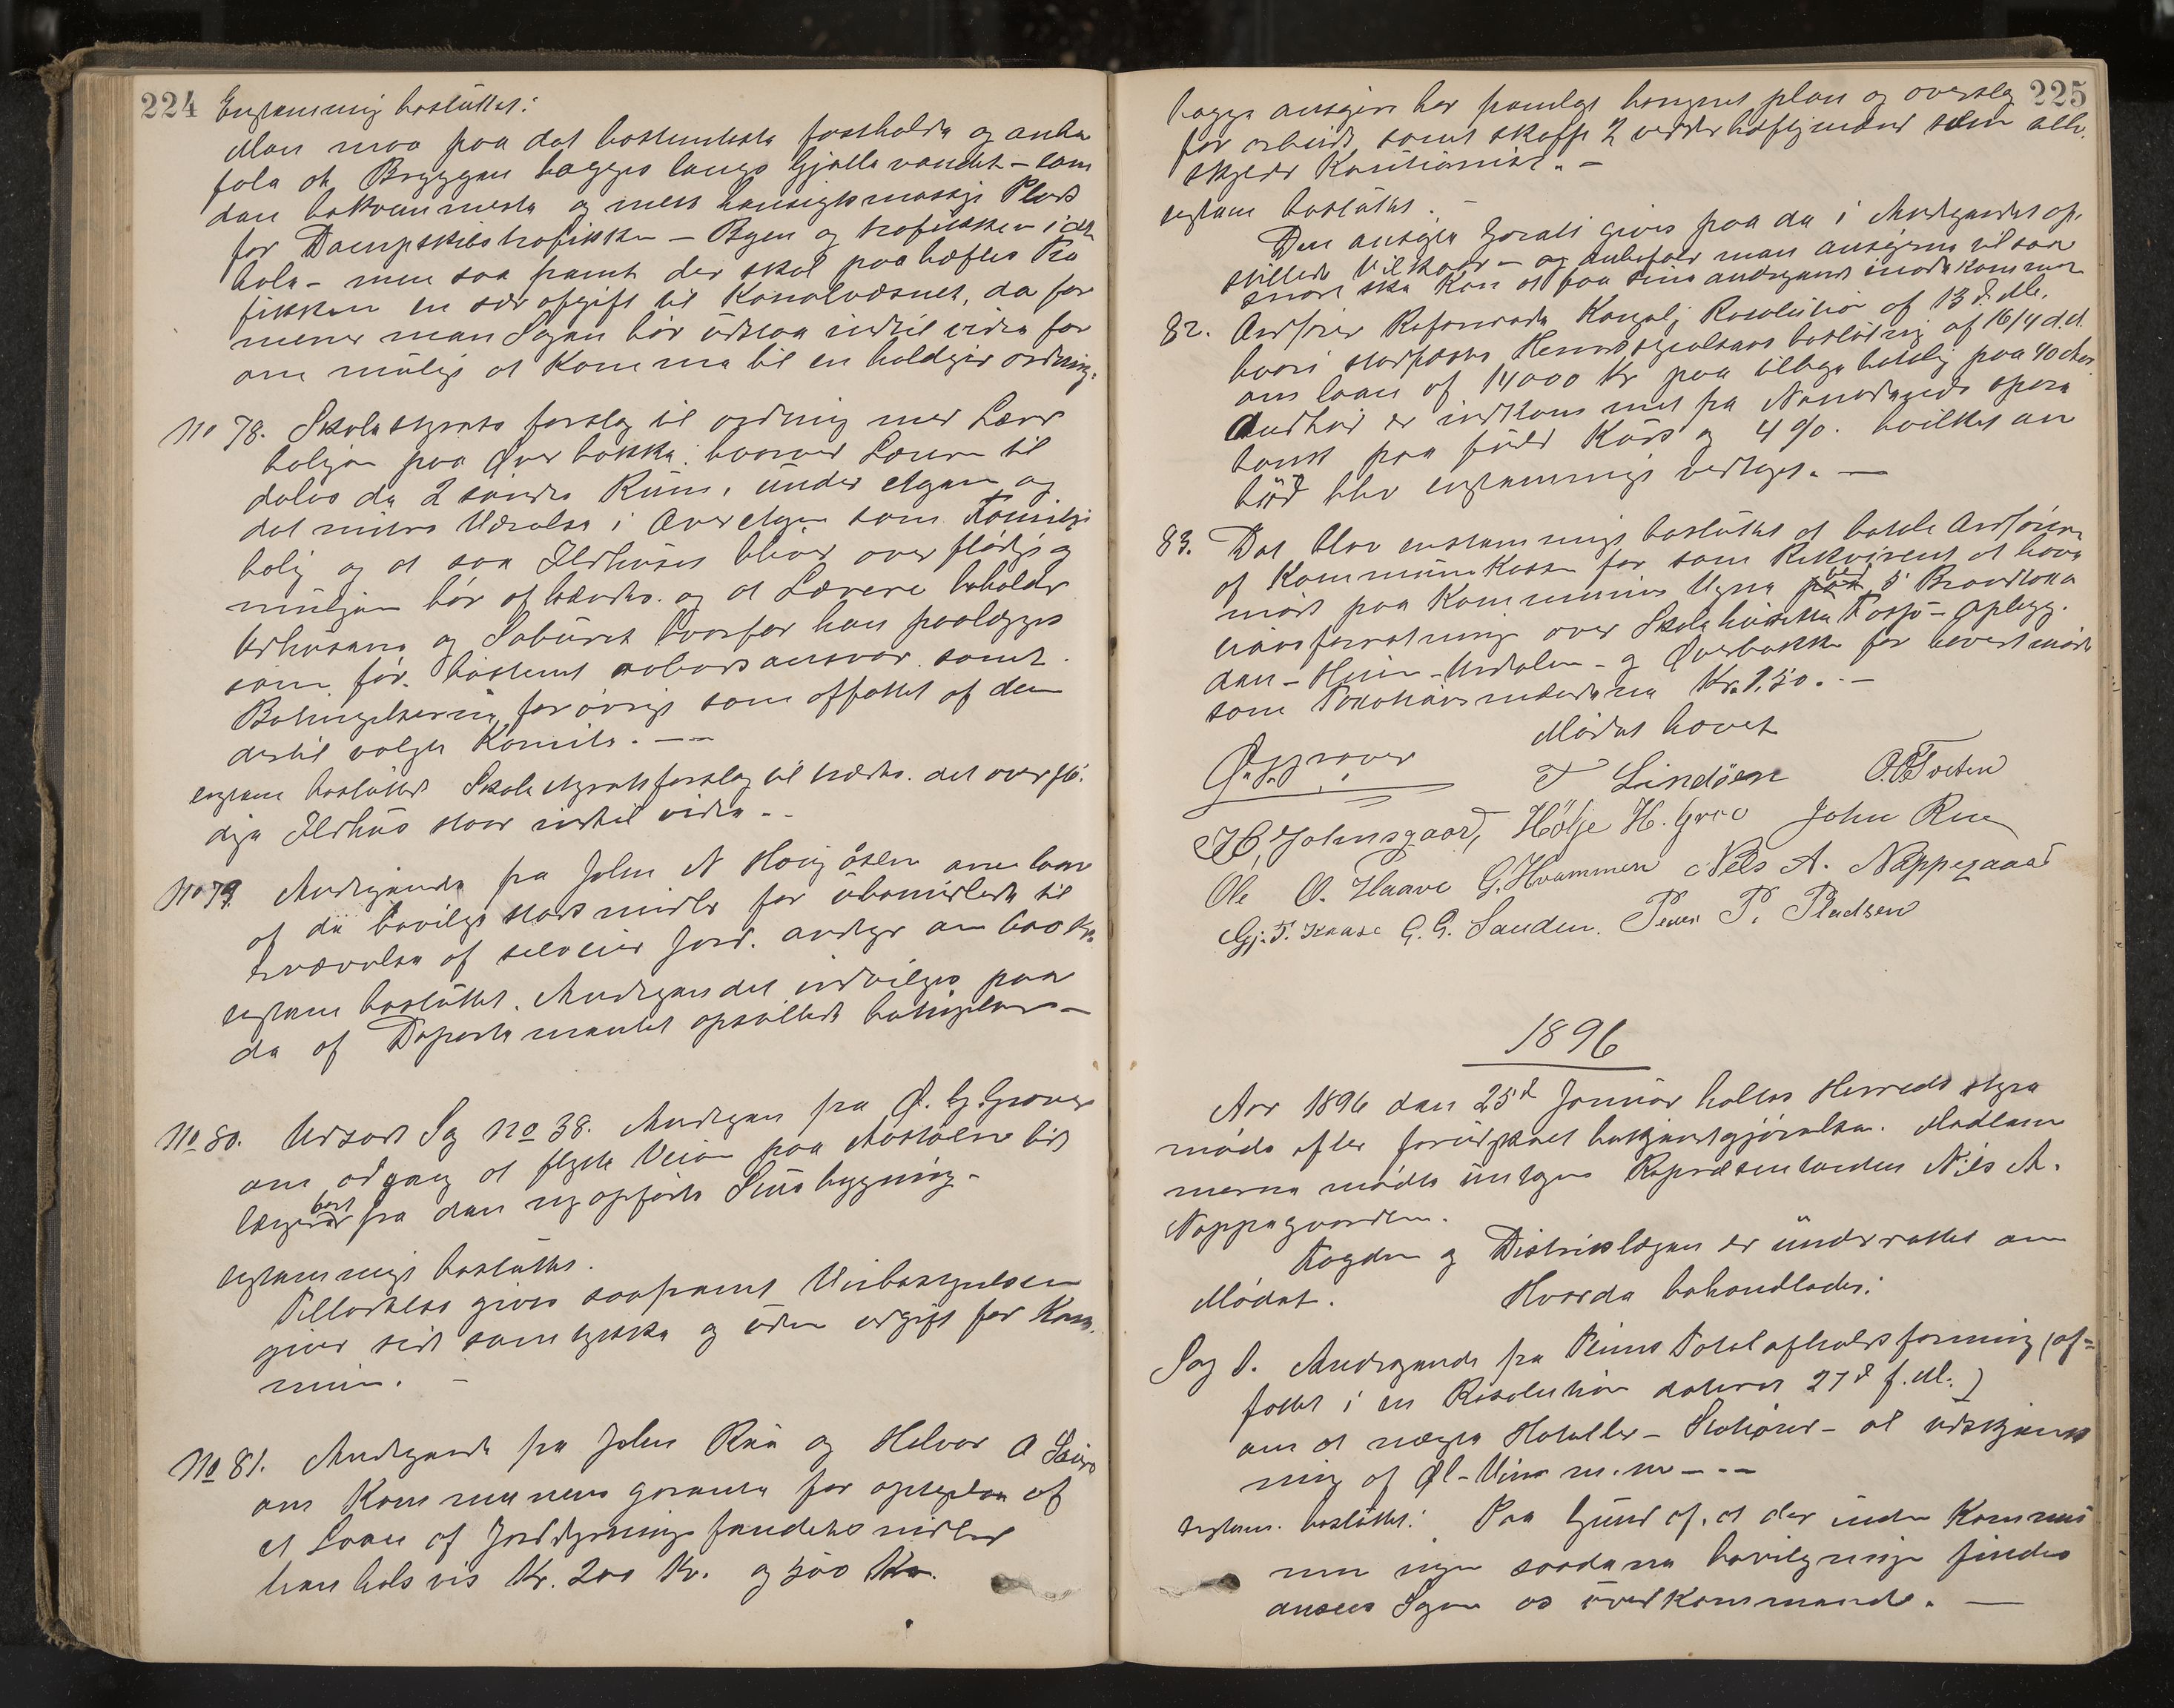 224
Enstemmig besluttet:
Man maa paa det bestemteste fastholde og anbe
fale at Bryggen lægges langs Gjellevandet – som
den bekvemmeste og mest hensigtsmæssige Plads
for Dampskibstrafikken – Byen og trafikken i det
hele – men saa framt der skal paa hæftes Tra
fikken en sær afgift til Kanalvæsnet, da for
mener man Sagen bør udstaa indtil videre for
om muligt at komme til en heldigere ordning.
No 78. Skolestyrets forslag til ordning med Lærer
boligen paa Øverbokka: hvorved Læreren til
deles de 2 søndre Rum, under etagen og
det nordre Værelse i Overetagen som Familje
bolig og at saa Ildhuset bliver overflødigt og
muligen bør afhændes. og at Læreren beholder
Udhusene og Saburet hvorfor han paalægges
som før bestemt aabodsansvar samt
Betingelserne forøvrigt som affattet af den
dertil valgte Komite. –
enstem besluttet Skolestyretsforslag tiltrædes. det overflø.
dige Ildhus staar indtil videre. –
No 79. Andragende fra John N om laan
af de bevilgede Statsmidler for ubemidlede til
erhvervelse af selveier Jord. andrager om 600 Kr.
enstem besluttet. Andragendet indvilges paa
de af Departementet opstillede betingelser –
No 80. Udsat Sag No 38. Andragen fra Ø. G. Grover
om adgang at flytte Veien paa Aastølen lidt
længere bort fra den nyopførte Stuebygning –
enstemmigt besluttet.
Tilladelse gives saaframt Veibestyrelsen
giver sit samtykke og uden udgift for Kom.
munen. –
No 81. Andragende fra John Rue og Halvor O
om Kommunens garanti for optagelse af
et Laan af Jorddyrkningsfondets midler
henholdsvis Kr. 200 Kr. og 500 Kr.
225
begge ansøgere har framlagt beregnet plan og overslag
for arbeidet samt skaffe 2 vederhæftig mænd som selv.
skyldner Kautionister. –
enstem besluttet. –
Den ansøgte Garanti gives paa de i Andragendet op.
stillede Vilkaar – og anbefaler man ansøgerne til saa
snart ske kan at faa sine andragende imødekommet
82. Ordfører Refererede Kongelig Resolution af 13 d. M.
hvori stadfæstes Herredsstyrelsens beslutning af 16/4 d.A.
om laan af 14000 Kr paa tilbagebetaling paa 40 Aar
Anbud er indkommet fra Numedals spare
bank paa fuld Kurs og 4 %. hvilket an
bud blev enstemmigt vedtaget. –
83. Det blev enstemmigt besluttet at betale Ordføreren
af Kommunekassen for som Rekvirent at have
mødt paa Kommunens Vegne ved 5 Brandtaxa
tionsforretninger over Skolehusene Fosso – Oplegg.
dan – Heim – Urdalen – og Øverbokka for hvert møde
som Taxationsmændene Kr. 1,50. –
Mødet hævet
Ø. G. Grover
T Lindøen O. T. Tveten
H. Johnsgaard, Hølje H. Groe John Rue
Ole O. Haave G. Hvammen Nels A. Nappegaard
Gj. T. Kaase G. G. Sanden. Peder P. Pladsen
1896
Aar 1896 den 25d Januar holtes Herredsstyre
møde efter forudgaaet bekjendtgjørelse. Medlem
merne mødte undtagen Repræsentanten Nils A.
Nappegaarden.
Fogden og Distriktslægen er underrettet om
Mødet. Hvorda behandledes:
Sag 1. Andragende fra Veums Totalafholdsforening (af-
fattet i en Resolution dateret 27d f. M.)
om at nægte Hoteller – Stationer – at udskjænk
ning af Øl – Vin m. m – –
enstem. besluttet: Paa Grund af, at der inden Kommu
nen ingen saadanne bevilgninger findes
ansees Sagen os uvedkommende. –